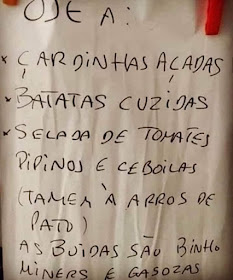 OJE A:
* ÇARDINHAS AÇADAS
* BATATAS CUZIDAS
* SELADA DE TOMATES
PIPINOS E CEBOILAS
(TAMEM À ARROS DE
PATO)
AS BUIDAS SÃO BINHO
MINERS E GASOZAS